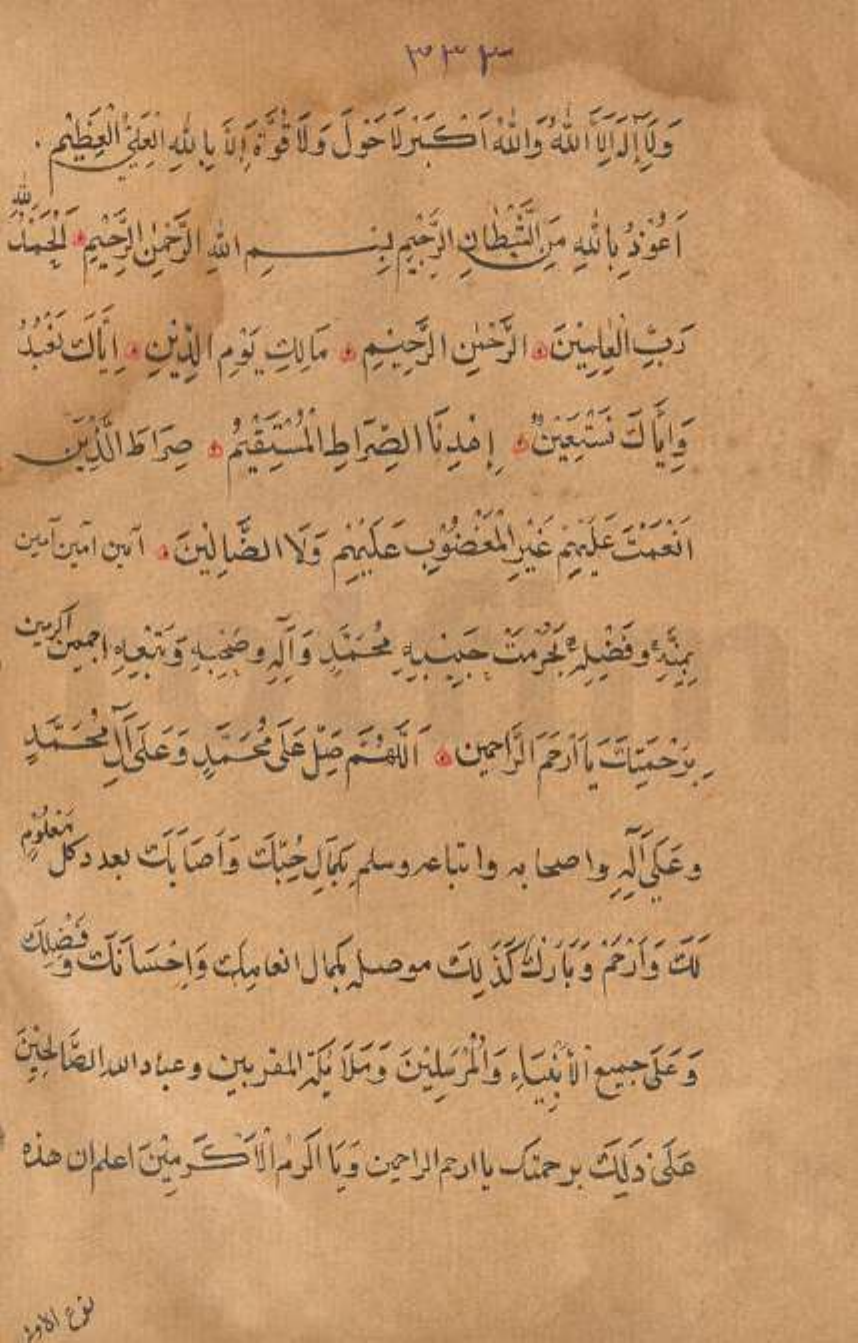 ٣٣٣
وَلَا إِلٰهَ إِلَّا اللّٰهُ وَاللّٰهُ اَكْبَرْ لَا حَوْلَ وَلَا قُوَّةَ إِلَّا بِاللّٰهِ الْعَلِيِّ الْعَظِيْمِ .
اَعُوْذُ بِاللّٰهِ مِنَ الشَّيْطَانِ الرَّجِيْمِ بِسْمِ اللّٰهِ الرَّحْمٰنِ الرَّحِيْمِ اَلْحَمْدُ لِلّٰهِ
رَبِّ الْعَالَمِيْنَ الرَّحْمٰنِ الرَّحِيْمِ مَالِكِ يَوْمِ الدِّيْنِ اِيَّاكَ نَعْبُدُ
وَاِيَّاكَ نَسْتَعِيْنُ اِهْدِنَا الصِّرَاطَ الْمُسْتَقِيْمَ صِرَاطَ الَّذِيْنَ
اَنْعَمْتَ عَلَيْهِمْ غَيْرِ الْمَغْضُوْبِ عَلَيْهِمْ وَلَا الضَّالِيْنَ آمين آمين آمين
بِمَنِّهِ وَفَضْلِهِ بِحُرْمَتْ حَبِيْبِهِ مُحَمَّدٍ وَآلِهِ وَصَحْبِهِ وَتَبَعِهِ اجمعين اكرمين
بِرَحْمَتِكَ يَا اَرْحَمَ الرَّاحمين اَللّٰهُمَّ صَلِّ عَلَى مُحَمَّدٍ وَعَلَى آلِ مُحَمَّدٍ
وعَلَى آلِهِ واصحابه واتباعه وسلم بِكَمَالِ حُبِّكَ وَاَصَابَكَ بعدد كل مَعْلُوْمٍ
لَكَ وَارْحَمْ وَبَارِكْ كَذٰلِكَ موصله بكمال انعامك وَاِحْسَانَكَ وَفَضْلِكَ
وَعَلَى جميع الْأَنْبِيَاءِ وَالْمُرْسَلِيْنَ وَمَلَائِكَةِ المقربين وعباد الله الصَّالِحِيْنَ
عَلَى ذٰلِكَ برحمتك يا ارحم الراحمين وَيَا اكرم الْاَكْرَمِيْنَ اعلم ان هذه